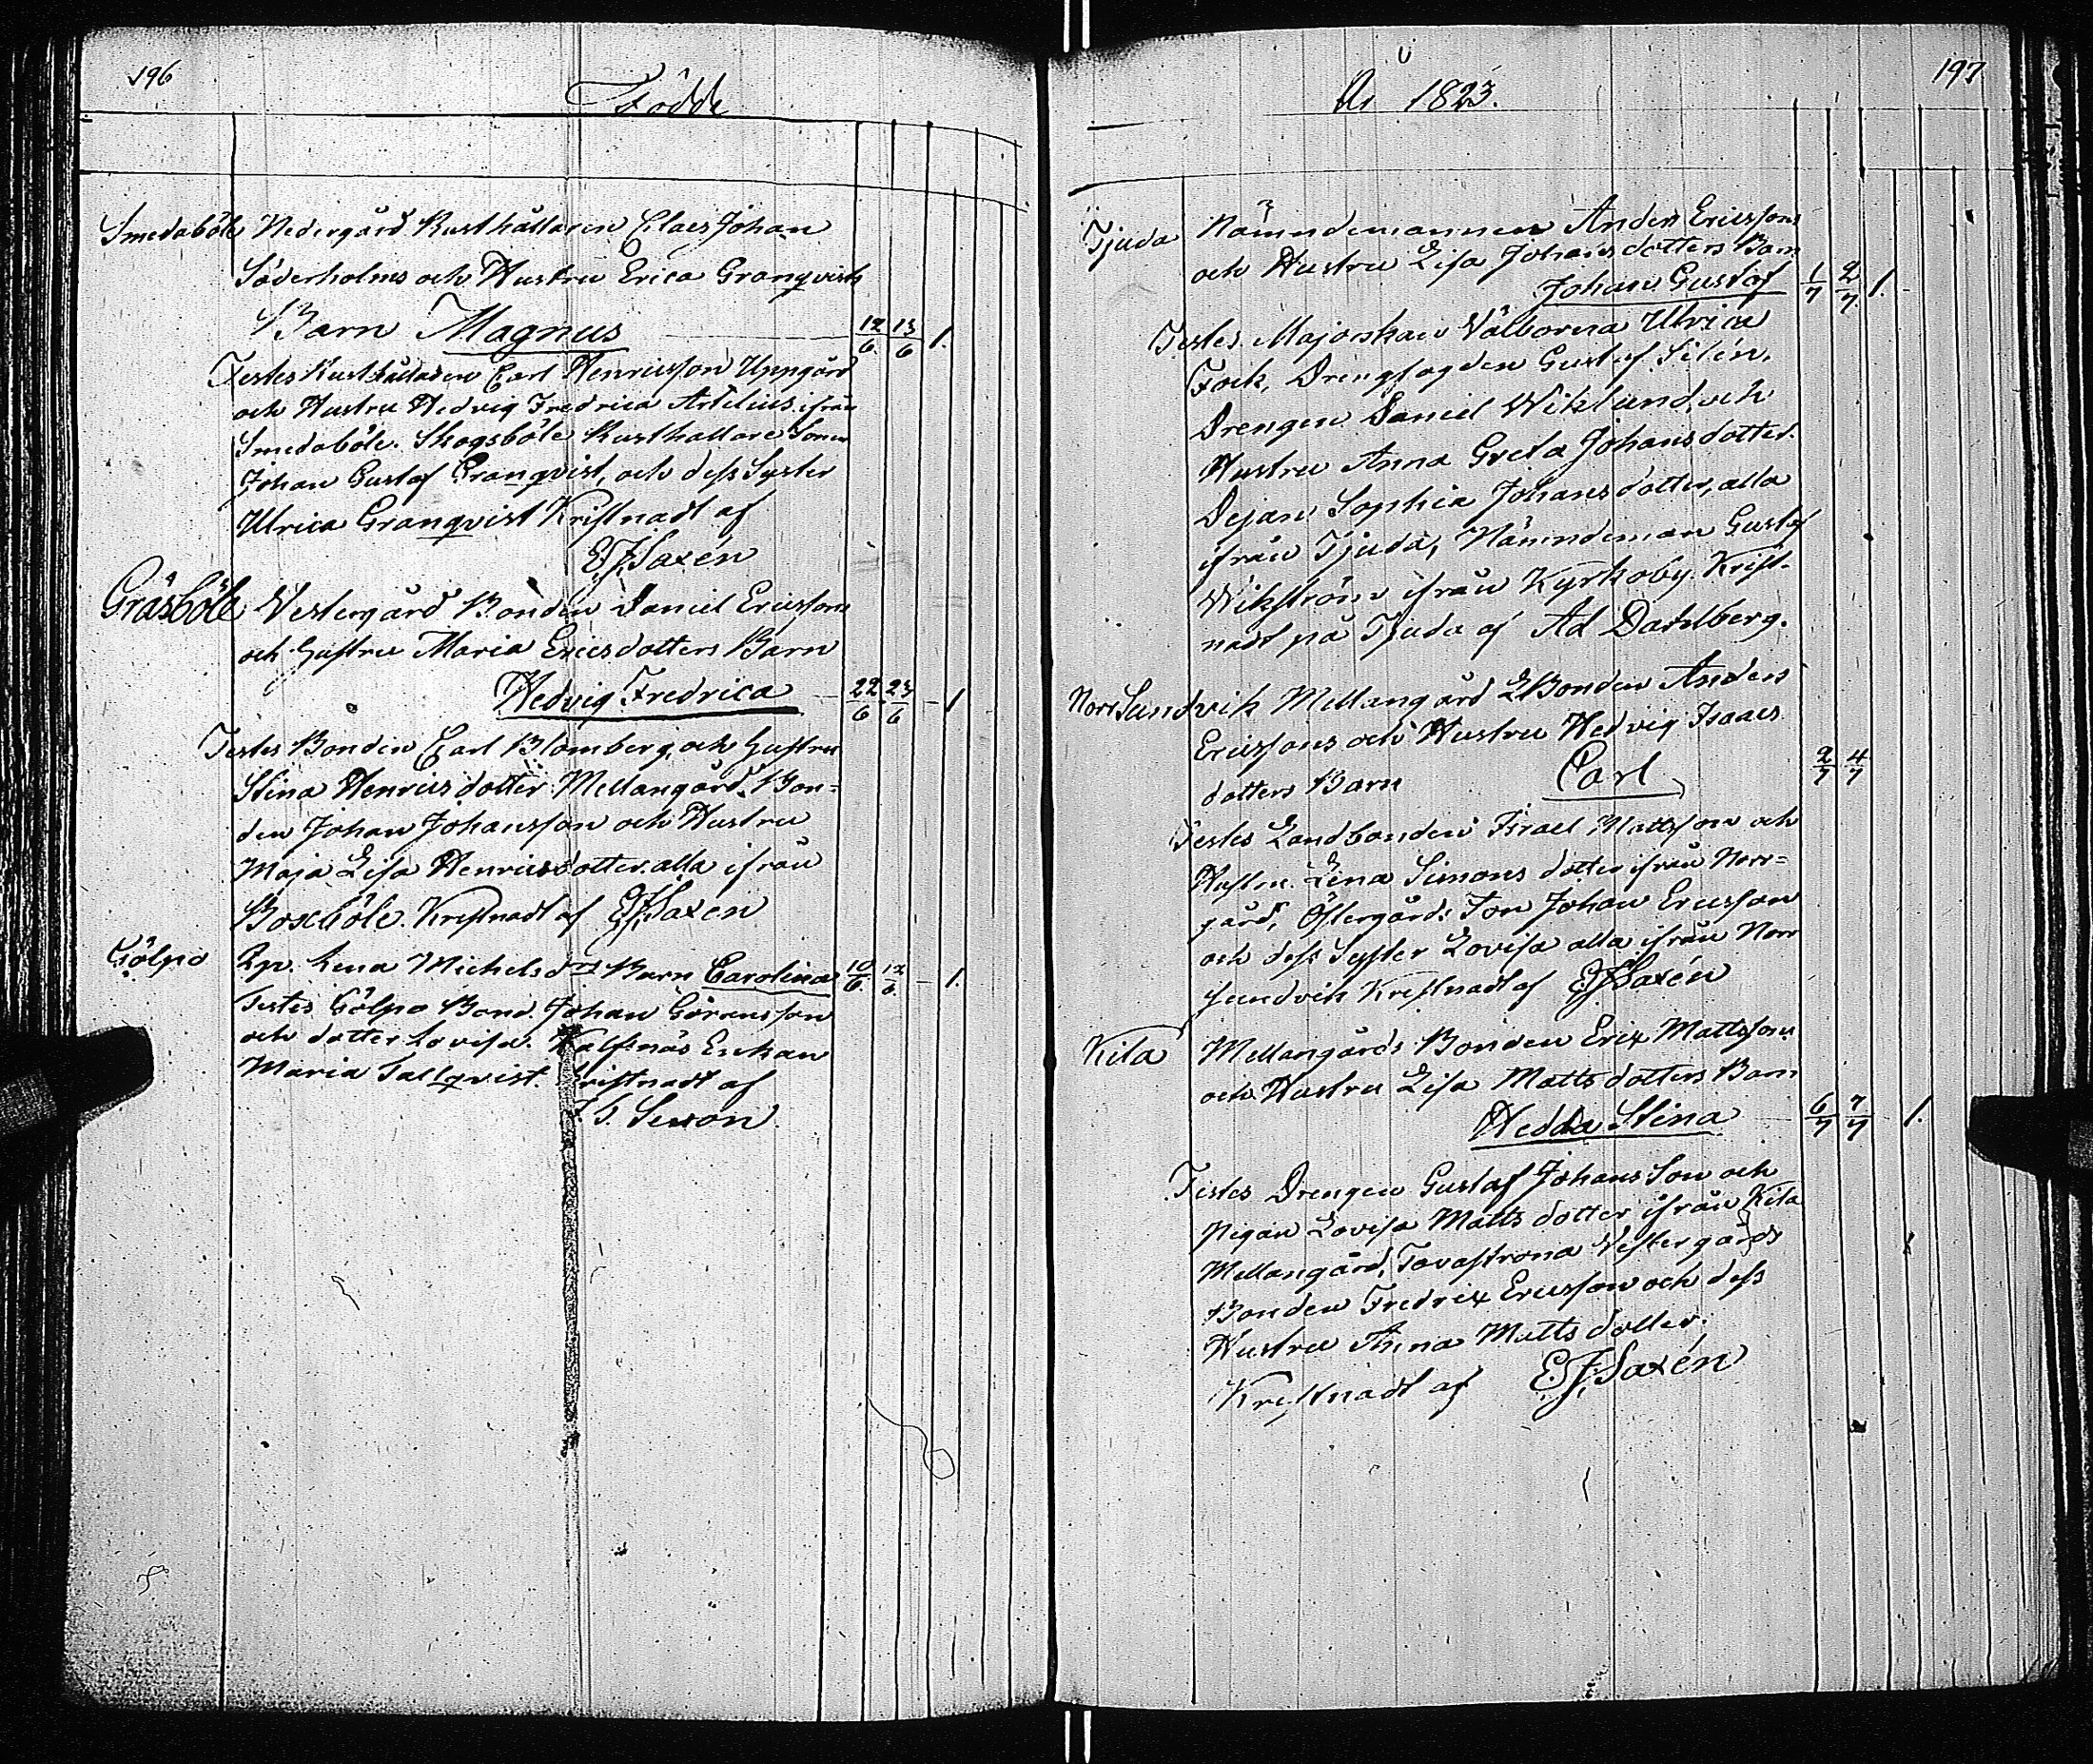 196
Födde
Smedaböle Nedergård Rusthållaren Claes Johan
Söderholms och Hustru Erica Granqvists
Barn Magnus 12/6 13/6 1.
Testes Rusthållaren Carl Henricsson Uppgård
och Hustru Hedvig Fredrica Artelius ifrån
Smedaböle. Skogsböle Rusthållare Sonen
Johan Gustaf Granqvist, och dess Syster
Ulrica Granqvist Kristnadt af
E.J. Saxén
Gräsböle Vestergård Bonden Daniel Ericssons
och Hustru Maria Ericsdotters Barn
Hedvig Fredrica 22/6 23/6 1
Testes Bonden Carl Blomberg, och Hustru
Stina Henricsdotter Mellangård. Bon=
den Johan Johansson och Hustru
Maja Lisa Henricsdotter alla ifrån
Boxböle. Kristnadt af E.J. Saxen
Gölpo Qp. Lena Michelsdr Barn Carolina 10/6. 12/6. 1.
Testes Gölpo Bond. Johan Göransson
och dotter Lovisa. Kalfnäs Enkan
Maria Tallqvist. Kristnadt af
J.S. Sexon.
197
År 1823.
Tjuda Nämndemannen Anders Ericssons
och Hustru Lisa Johansdotters Barn
Johan Gustaf 1/7 2/7. 1.
Testes. Majorskan Välborna Ulrica
Fock, Drengfogden Gustaf Silén,
Drengen Daniel Wiklund, och
Hustru Anna Greta Johansdotter.
Pejan Sophia Johansdotter, alla
ifrån Tjuda, Nämndeman Gustaf
Wikström ifrån Kyrkoby. Krist-
nadt på Tjuda af Ad Dahlberg.
Norr Sundvik Mellangård LBonden Anders
Ericssons och Hustru Hedvig Isaacs
dotters Barn Carl 2/7 4/7
Testes Landbonden Israel Mattsson och
Hustru Lena Simonsdotter ifrån Norr=
gård, Östergårds Son Johan Ericsson
och dess Syster Lovisa alla ifrån Norr
sundvik Kristnadt af E.J. Saxén
Kila Mellangårds Bonden Erix Mattssons
och Hustru Lisa Mattsdotters Barn
Hedda Stina 6/7 7/7 1.
Testes Drengen Gustaf Johans Son och
Pigan Lovisa Mattsdotter ifrån Kila
Mellangård, Tavastrona Vestergårds
Bonden Fredrix Ericsson och dess
Hustru Anna Mattsdotter.
Kristnadt af E.J. Saxén